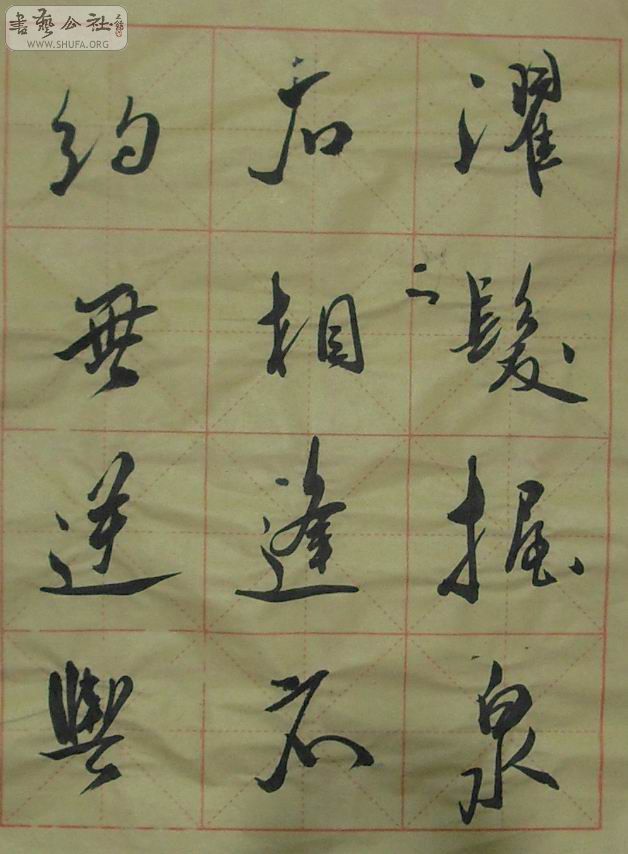 濯髮握泉
石相逢不
約無逆與
書藝公社
WWW.SHUFA.ORG